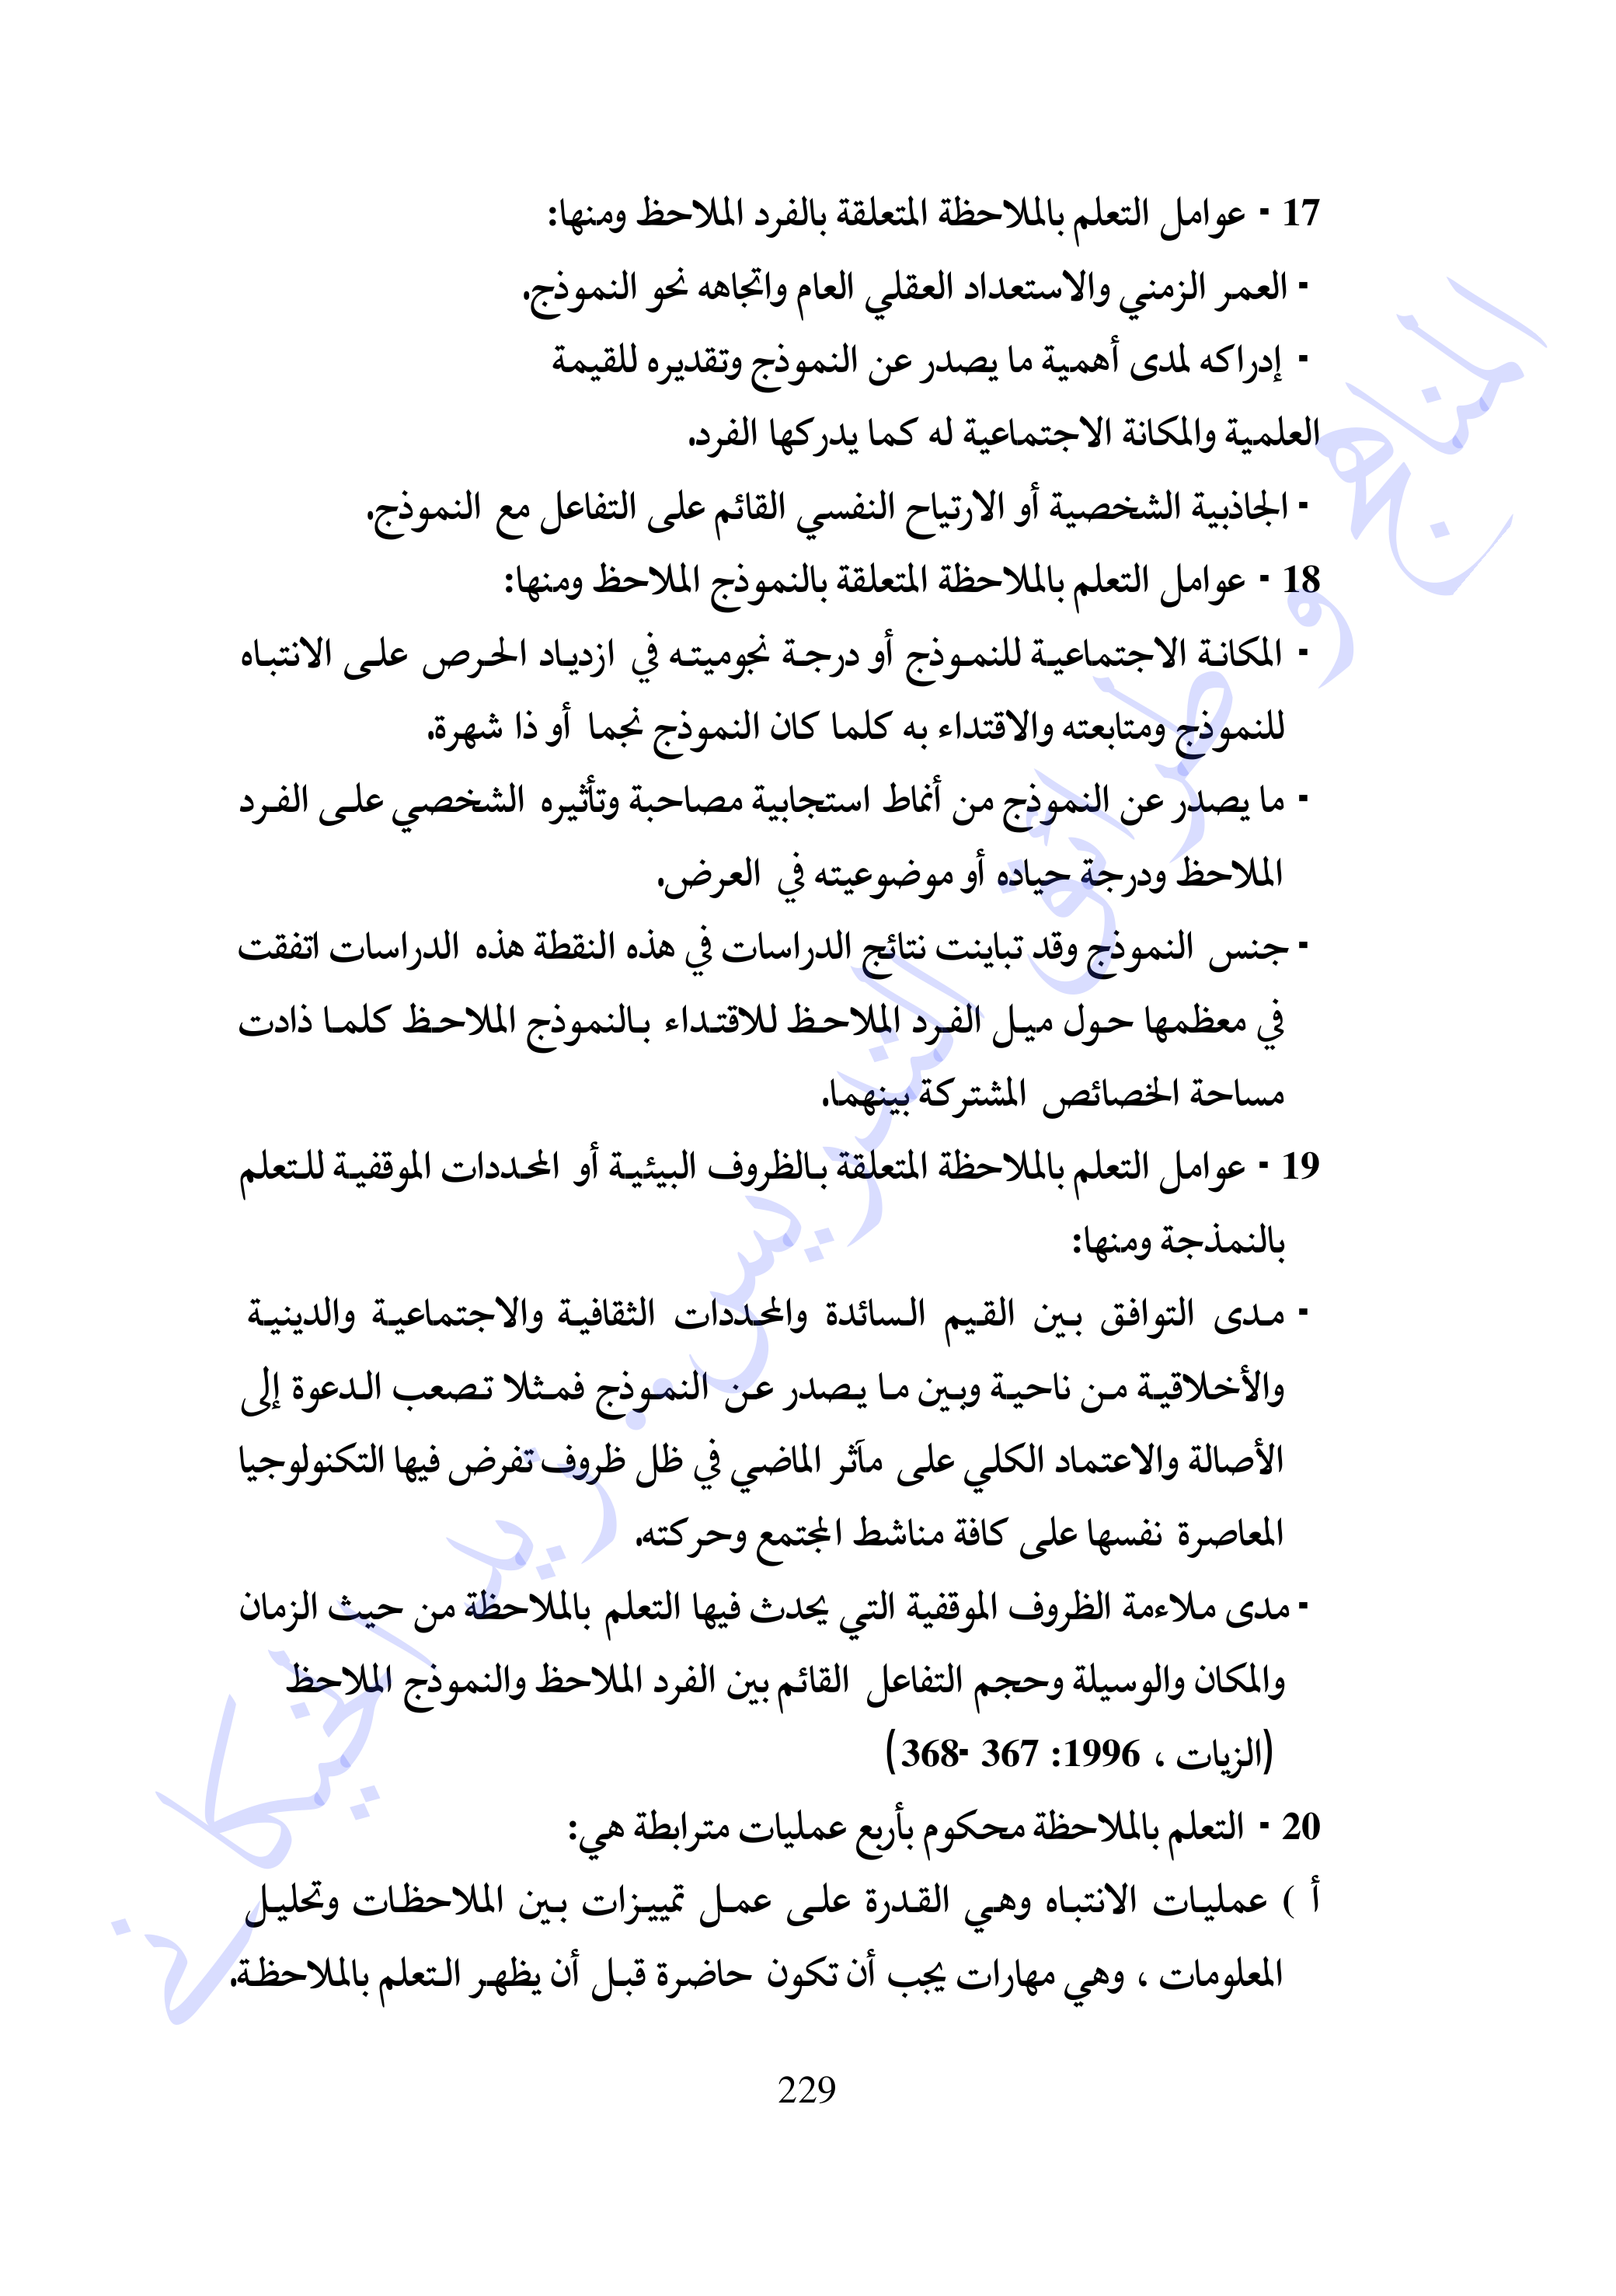 17 - عوامل التعلم بالملاحظة المتعلقة بالفرد الملاحظ ومنها:
- العمر الزمني والاستعداد العقلي العام واتجاهه نحو النموذج.
- إدراكه لمدى أهمية ما يصدر عن النموذج وتقديره للقيمة
العلمية والمكانة الاجتماعية له كما يدركها الفرد.
- الجاذبية الشخصية أو الارتياح النفسي القائم على التفاعل مع النموذج.
18 - عوامل التعلم بالملاحظة المتعلقة بالنموذج الملاحظ ومنها:
- المكانة الاجتماعية للنموذج أو درجة نجوميته في ازدياد الحرص على الانتباه
للنموذج ومتابعته والاقتداء به كلما كان النموذج نجما أو ذا شهرة.
- ما يصدر عن النموذج من أنماط استجابية مصاحبة وتأثيره الشخصي على الفرد
الملاحظ ودرجة حياده أو موضوعيته في العرض.
- جنس النموذج وقد تباينت نتائج الدراسات في هذه النقطة هذه الدراسات اتفقت
في معظمها حول ميل الفرد الملاحظ للاقتداء بالنموذج الملاحظ كلما ذادت
مساحة الخصائص المشتركة بينهما.
19 - عوامل التعلم بالملاحظة المتعلقة بالظروف البيئية أو المحددات الموقفية للتعلم
بالنمذجة ومنها:
- مدى التوافق بين القيم السائدة والمحددات الثقافية والاجتماعية والدينية
والأخلاقية من ناحية وبين ما يصدر عن النموذج فمثلا تصعب الدعوة إلى
الأصالة والاعتماد الكلي على مآثر الماضي في ظل ظروف تفرض فيها التكنولوجيا
المعاصرة نفسها على كافة مناشط المجتمع وحركته.
- مدى ملاءمة الظروف الموقفية التي يحدث فيها التعلم بالملاحظة من حيث الزمان
والمكان والوسيلة وحجم التفاعل القائم بين الفرد الملاحظ والنموذج الملاحظ
(الزيات ، 1996: 367 -368)
20 - التعلم بالملاحظة محكوم بأربع عمليات مترابطة هي:
أ ) عمليات الانتباه وهي القدرة على عمل تمييزات بين الملاحظات وتحليل
المعلومات ، وهي مهارات يجب أن تكون حاضرة قبل أن يظهر التعلم بالملاحظة.
229